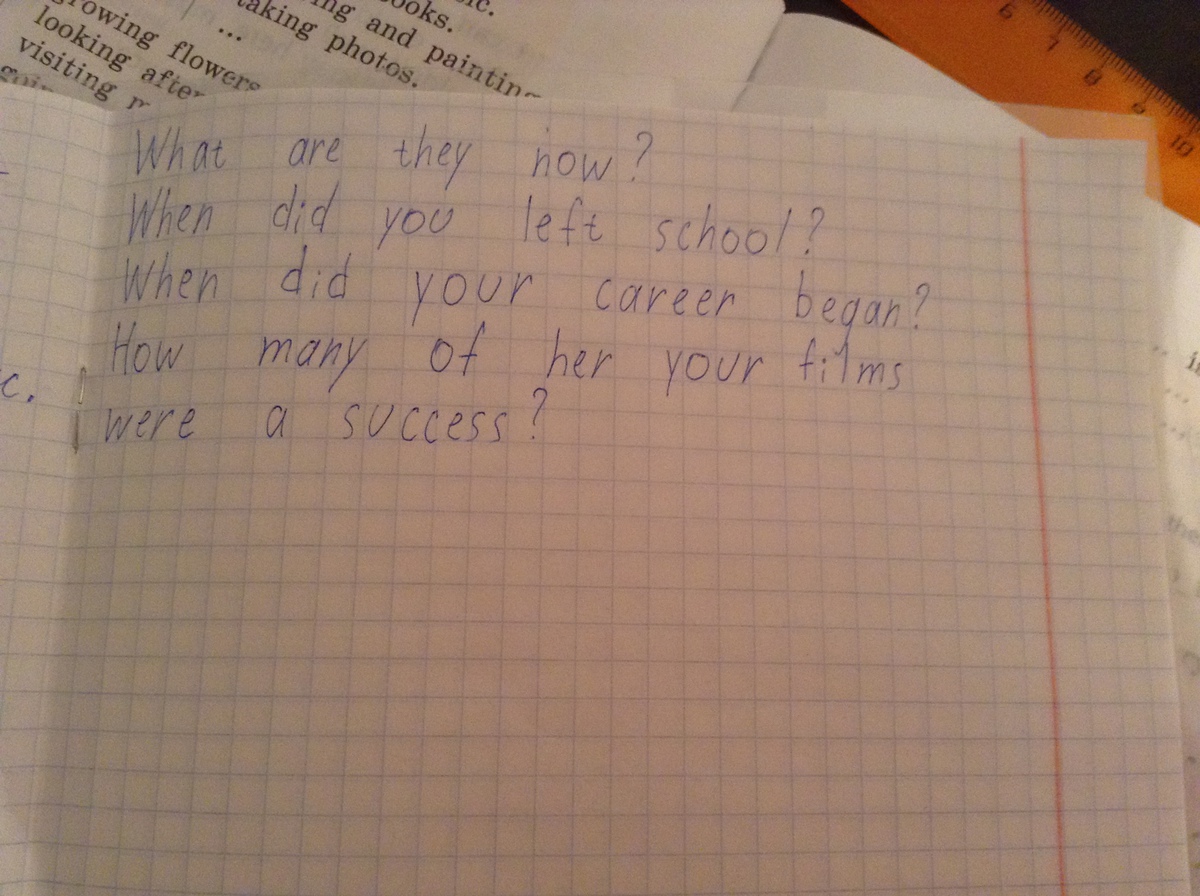 ooks.
ing and painting
taking photos.
...
growing flowers
looking after
visiting
c.
What are they now?
When did you left school?
When did your career began?
How many of her your films
were a success?
6
7
8
9
10